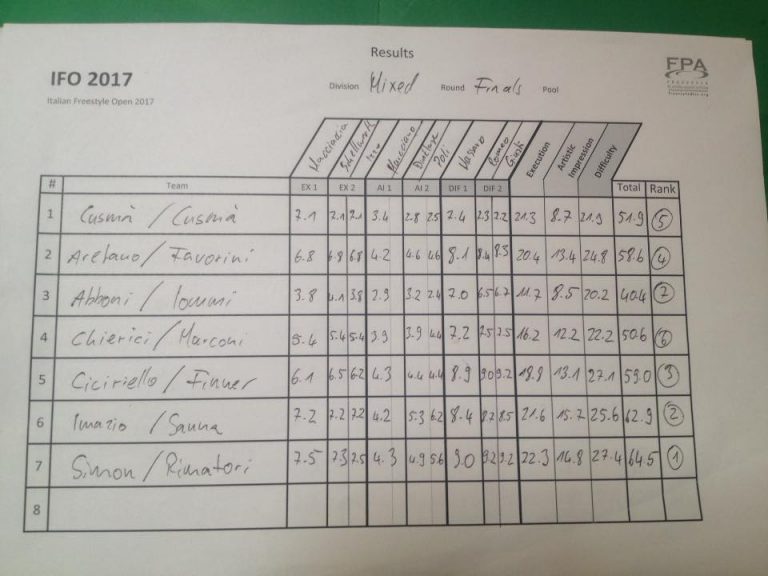 Results
IFO 2017
FPA
Italian Freestyle Open 2017
Division Mixed Round Finals Pool
Execution Artistic Impression Difficulty
# Team EX 1 EX 2 AI 1 AI 2 DIF 1 DIF 2 Total Rank
1 Cusmà / Cusmà 7.1 7.1 7.1 3.4 2.8 2.5 7.4 7.3 7.2 21.3 8.7 21.9 51.9 5
2 Aretano / Favorini 6.8 6.8 6.8 4.2 4.6 4.6 8.1 8.4 8.3 20.4 13.4 24.8 58.6 4
3 Abboni / Iommi 3.8 4.1 3.8 2.9 3.2 2.4 7.0 6.5 6.7 11.7 8.5 20.2 40.4 7
4 Chierici / Marconi 5.4 5.4 5.4 3.9 3.9 4.4 7.2 7.5 7.5 16.2 12.2 22.2 50.6 6
5 Ciciriello / Finner 6.1 6.5 6.2 4.3 4.4 4.4 8.9 9.0 9.2 18.8 13.1 27.1 59.0 3
6 Imazio / Sanna 7.2 7.2 7.2 4.2 5.3 6.2 8.4 8.7 8.5 21.6 15.7 25.6 62.9 2
7 Simon / Rimatori 7.5 7.3 7.5 4.3 4.9 5.6 9.0 9.2 9.2 22.3 14.8 27.4 64.5 1
8